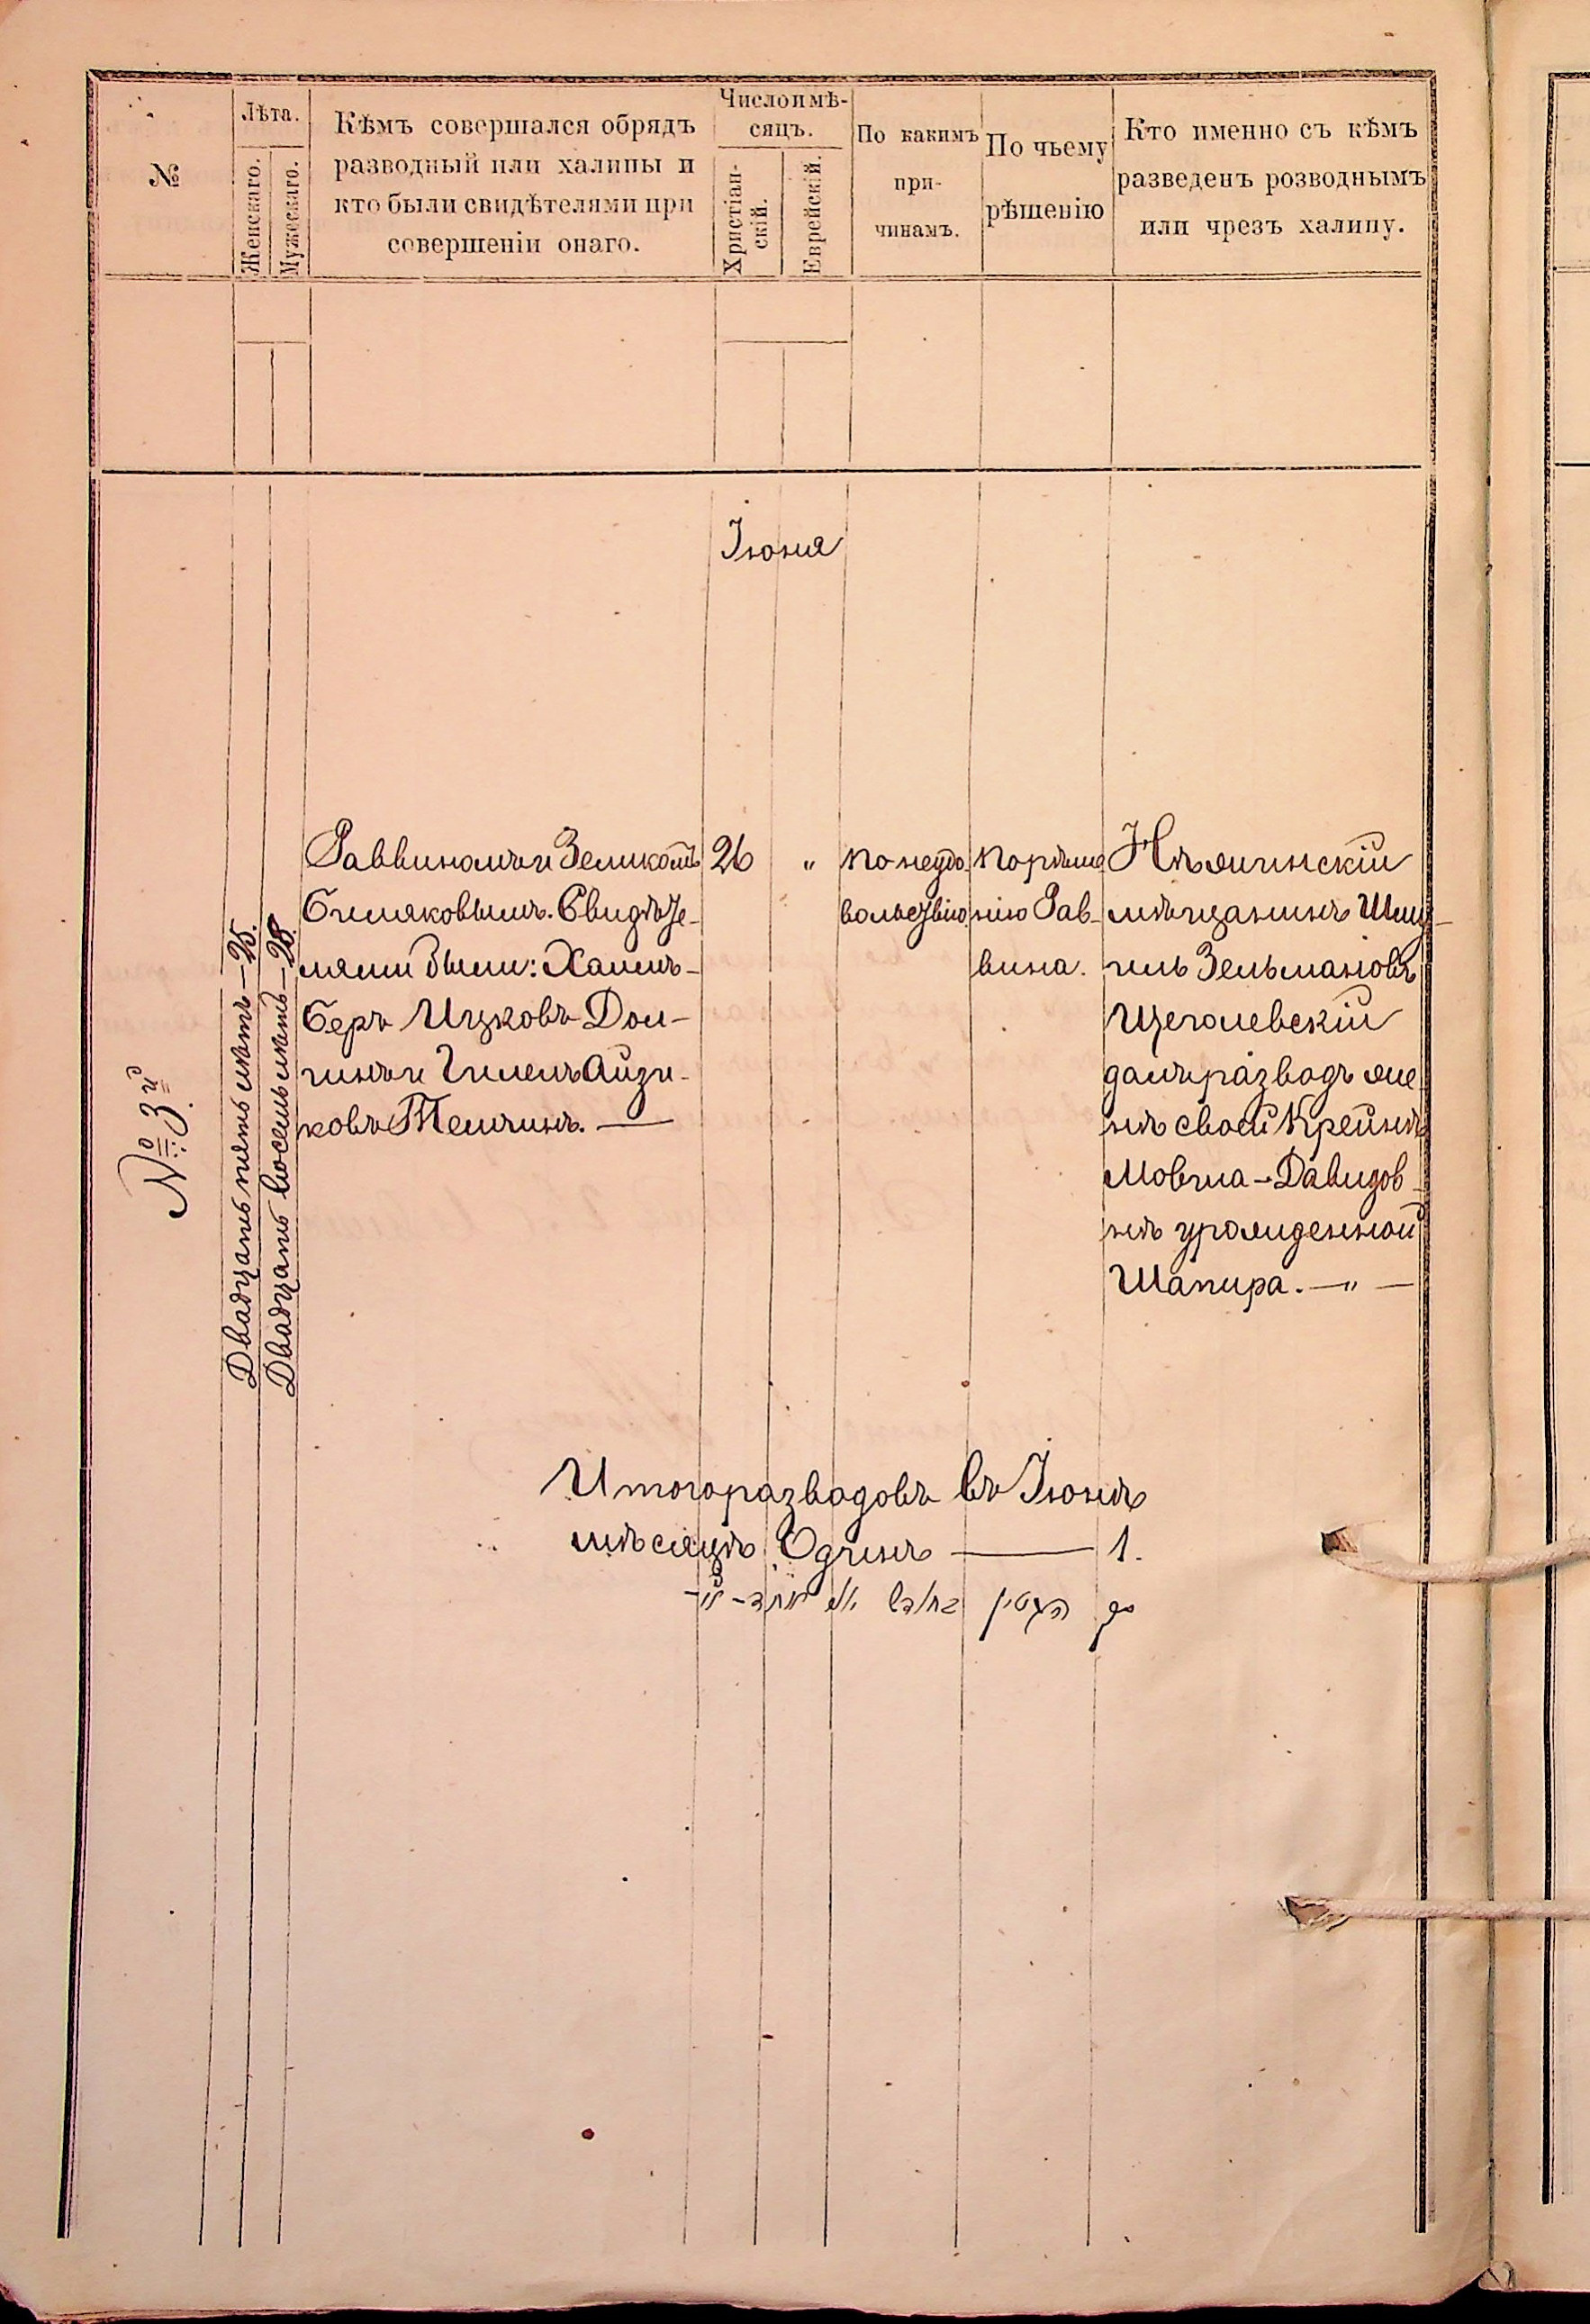 №
Лѣта.
Женскаго.
Мужескаго.
Кѣмъ совершался обрядъ
разводный или халицы и
кто были свидѣтелями при
совершеніи онаго.
Число и мѣ-
сяцъ.
Христіан-
скій.
Еврейскій.
По какимъ
при-
чинамъ.
По чьему
рѣшенію
Кто именно съ кѣмъ
разведенъ розводнымъ
или чрезъ халицу.
Іюня
№ 3й
Двадцать пять лѣтъ — 25.
Двадцать восемь лѣтъ — 28.
Раввиномъ Зеликомъ
Симяковымъ. Свидѣте-
лями были: Хаимъ-
Беръ Ицковъ Дол-
гинъ и Айзи-
ковъ Темчинъ. —
26 "
По неудо-
вольствію
По рѣше-
нію Рав-
вина.
Нѣжинскій
мѣщанинъ Шму-
иль Зельмановъ
Щеголевскій
далъ разводъ же-
нѣ своей Крейнѣ
Мовша-Давидов-
нѣ урожденной
Шапира. — " —
Итого разводовъ въ Іюнѣ
мѣсяцѣ Одинъ — 1.